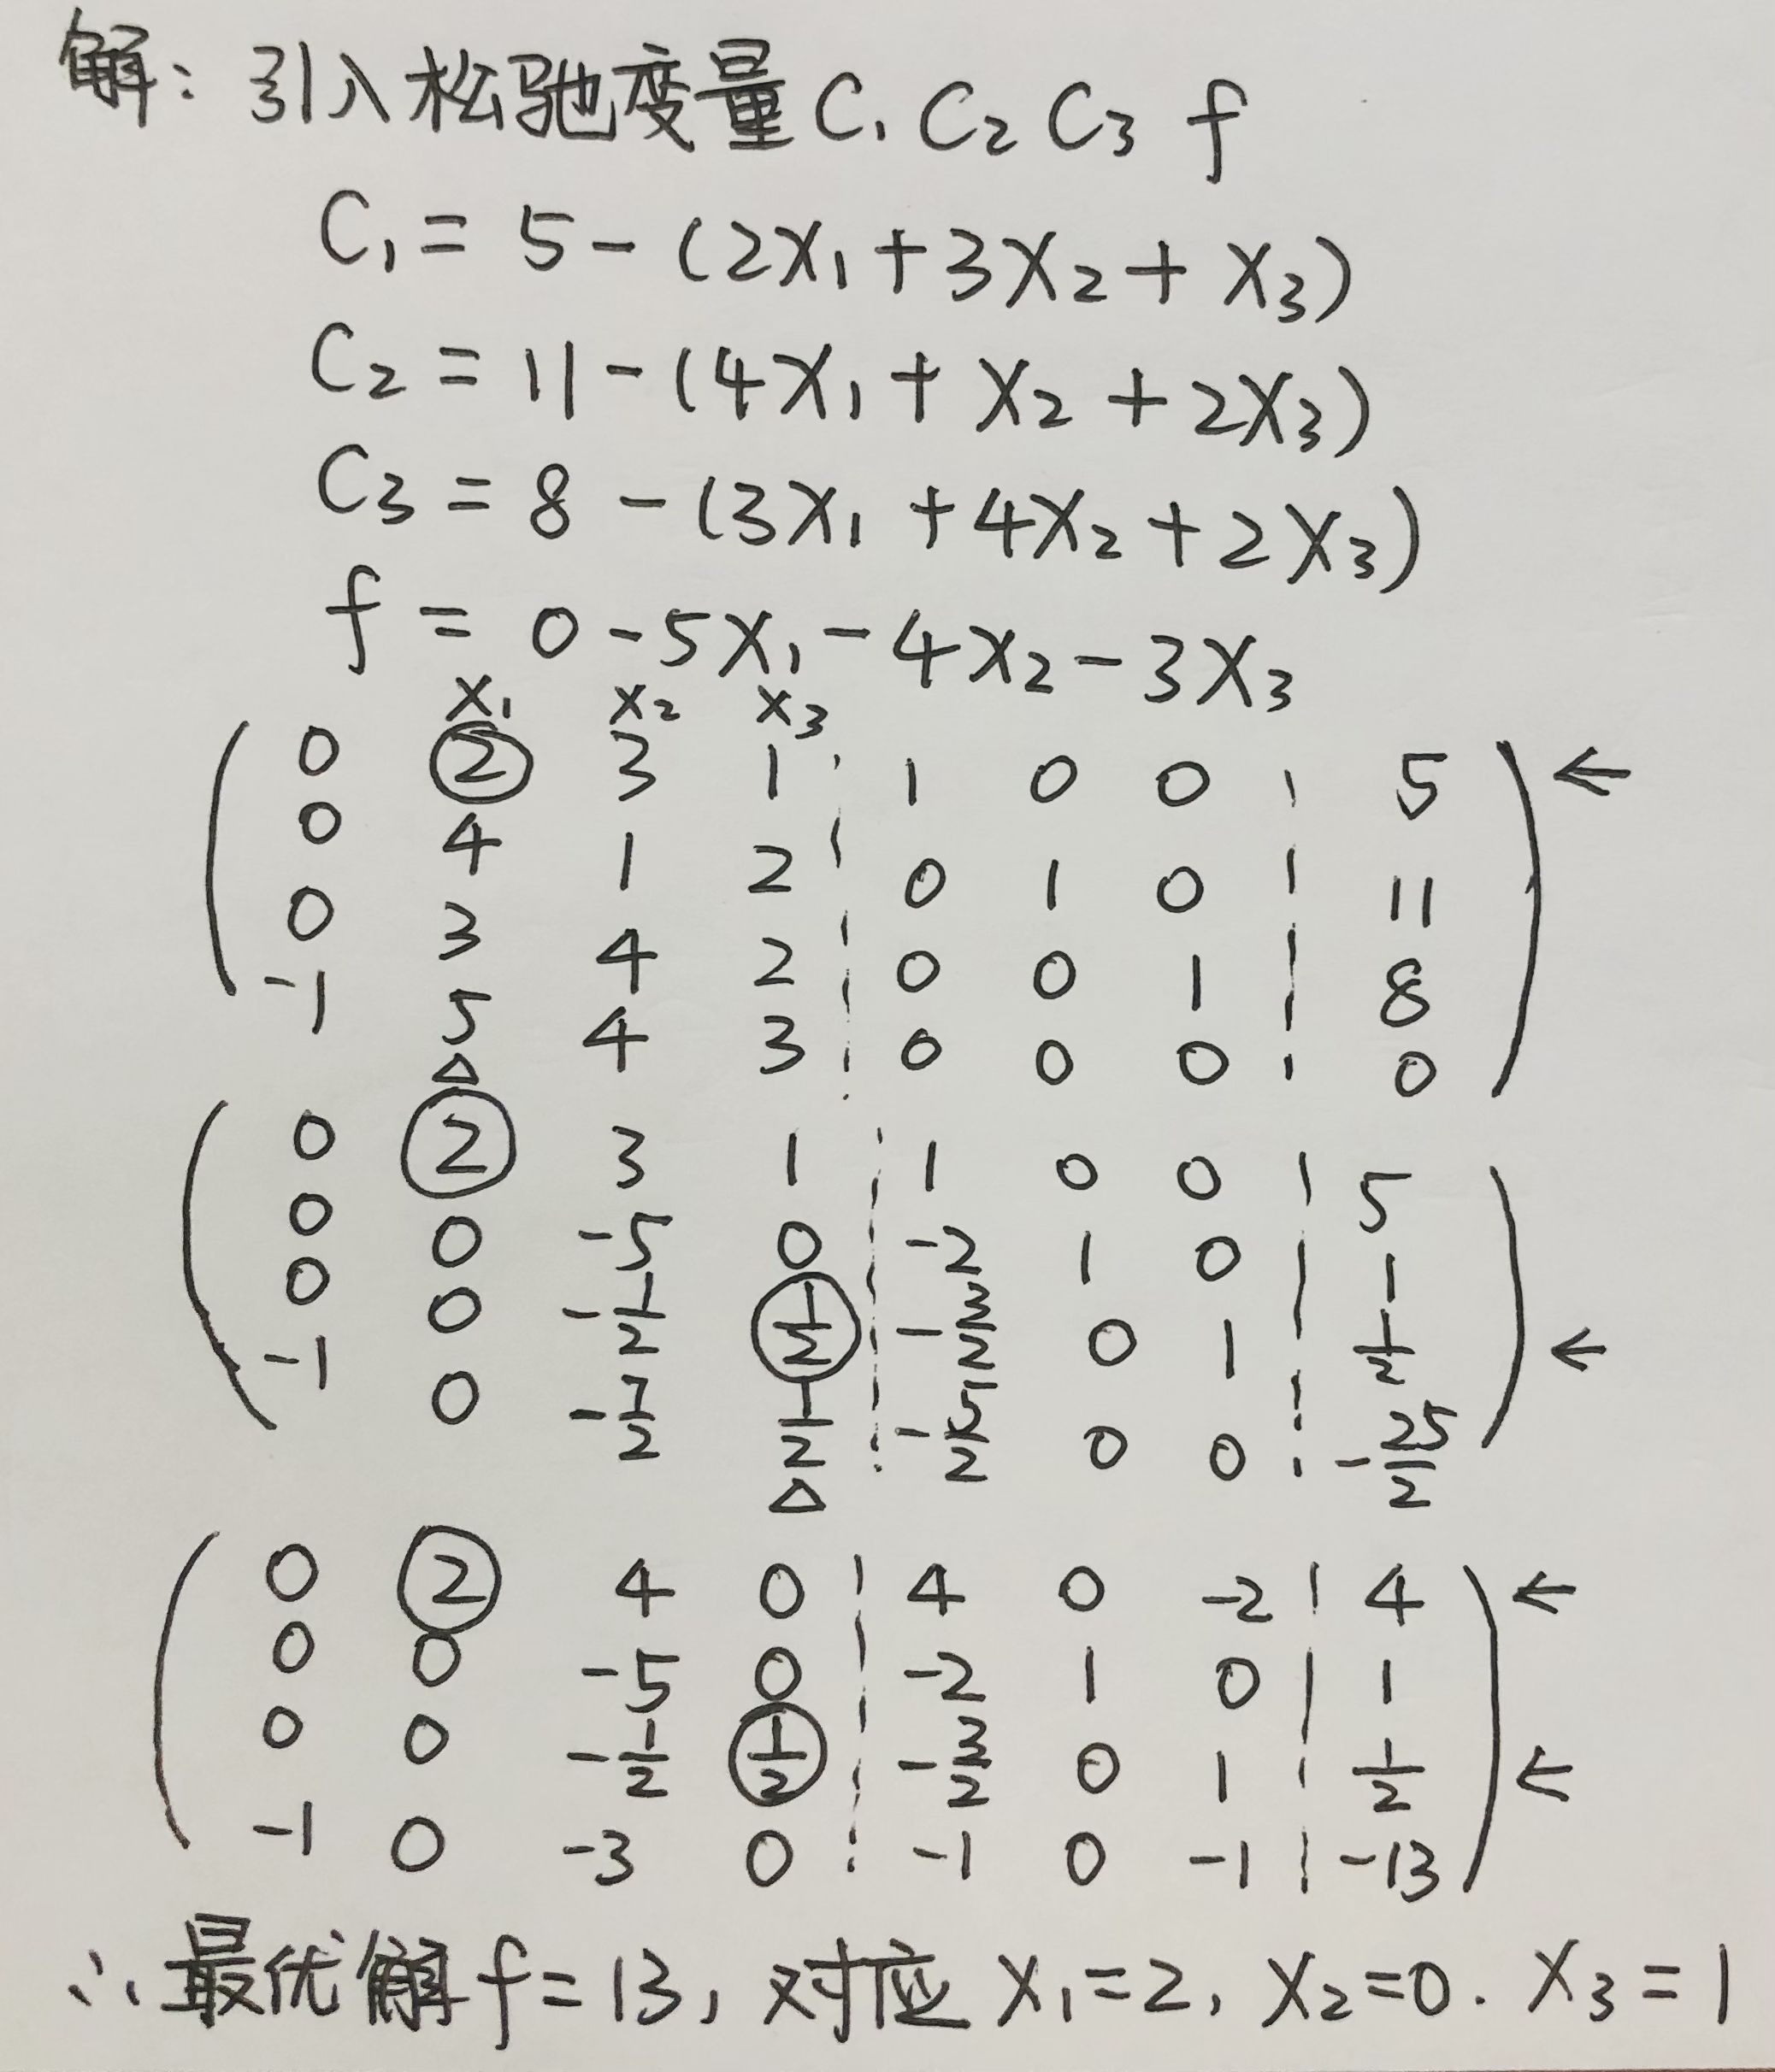 解：引入松驰变量 C₁ C₂ C₃ f
C₁ = 5 - (2X₁ + 3X₂ + X₃)
C₂ = 11 - (4X₁ + X₂ + 2X₃)
C₃ = 8 - (3X₁ + 4X₂ + 2X₃)
f = 0 - 5X₁ - 4X₂ - 3X₃
X₁ X₂ X₃
0 2 3 1 1 0 0 5 ←
0 4 1 2 0 1 0 11
0 3 4 2 0 0 1 8
-1 5 4 3 0 0 0 0
△
0 2 3 1 1 0 0 5
0 0 -5 0 -2 1 0 1
0 0 -1/2 1/2 -3/2 0 1 1/2 ←
-1 0 -7/2 1/2 -5/2 0 0 -25/2
△
0 2 4 0 4 0 -2 4 ←
0 0 -5 0 -2 1 0 1
0 0 -1/2 1/2 -3/2 0 1 1/2 ←
-1 0 -3 0 -1 0 -1 -13
∴最优解 f = 13，对应 X₁=2，X₂=0. X₃=1